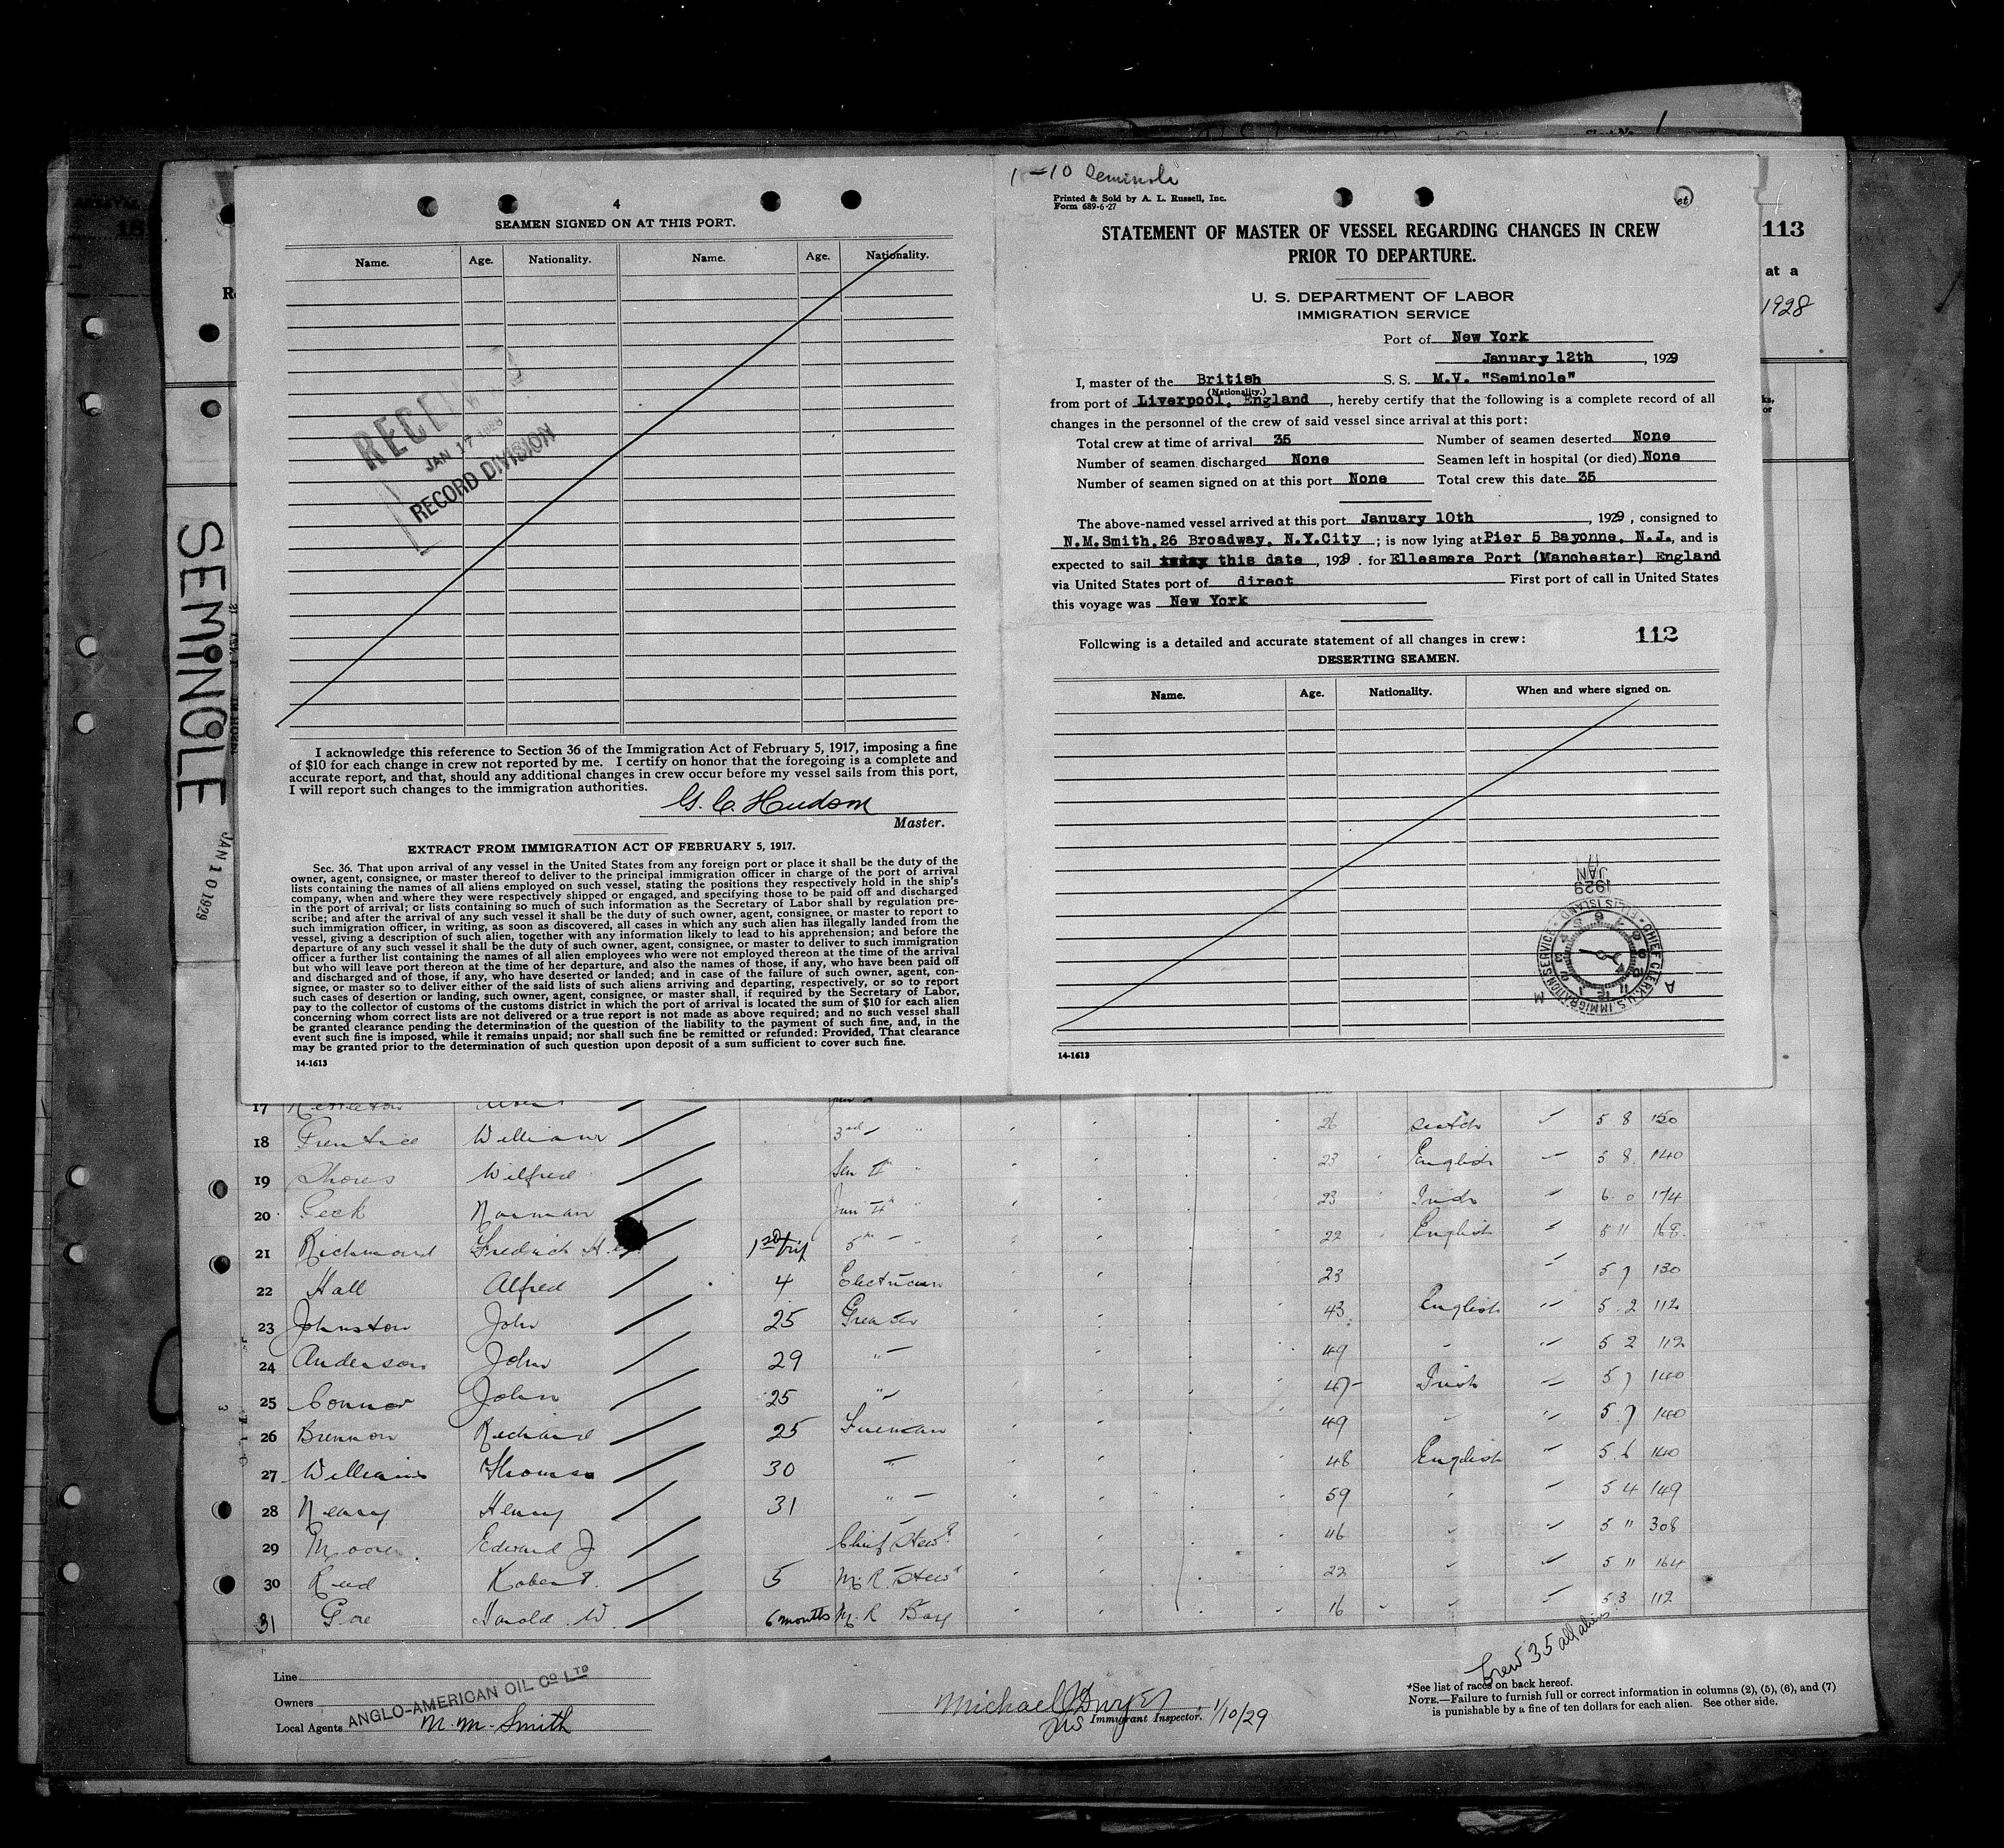 1-10 Seminole
4
SEAMEN SIGNED ON AT THIS PORT.
Name. Age. Nationality. Name. Age. Nationality.
RECEIVED
JAN 17 1929
RECORD DIVISION
I acknowledge this reference to Section 36 of the Immigration Act of February 5, 1917, imposing a fine
of $10 for each change in crew not reported by me. I certify on honor that the foregoing is a complete and
accurate report, and that, should any additional changes in crew occur before my vessel sails from this port,
I will report such changes to the immigration authorities.
G. C. Hudson
Master.
EXTRACT FROM IMMIGRATION ACT OF FEBRUARY 5, 1917.
Sec. 36. That upon arrival of any vessel in the United States from any foreign port or place it shall be the duty of the
owner, agent, consignee, or master thereof to deliver to the principal immigration officer in charge of the port of arrival
lists containing the names of all aliens employed on such vessel, stating the positions they respectively hold in the ship's
company, when and where they were respectively shipped or engaged, and specifying those to be paid off and discharged
in the port of arrival; or lists containing so much of such information as the Secretary of Labor shall by regulation pre-
scribe; and after the arrival of any such vessel it shall be the duty of such owner, agent, consignee, or master to report to
such immigration officer, in writing, as soon as discovered, all cases in which any such alien has illegally landed from the
vessel, giving a description of such alien, together with any information likely to lead to his apprehension; and before the
departure of any such vessel it shall be the duty of such owner, agent, consignee, or master to deliver to such immigration
officer a further list containing the names of all alien employees who were not employed thereon at the time of the arrival
but who will leave port thereon at the time of her departure, and also the names of those, if any, who have been paid off
and discharged and of those, if any, who have deserted or landed; and in case of the failure of such owner, agent, con-
signee, or master so to deliver either of the said lists of such aliens arriving and departing, respectively, or so to report
such cases of desertion or landing, such owner, agent, consignee, or master shall, if required by the Secretary of Labor,
pay to the collector of customs of the customs district in which the port of arrival is located the sum of $10 for each alien
concerning whom correct lists are not delivered or a true report is not made as above required; and no such vessel shall
be granted clearance pending the determination of the question of the liability to the payment of such fine, and, in the
event such fine is imposed, while it remains unpaid; nor shall such fine be remitted or refunded: Provided, That clearance
may be granted prior to the determination of such question upon deposit of a sum sufficient to cover such fine.
14-1613
Printed & Sold by A. L. Russell, Inc.
Form 689-6-27
STATEMENT OF MASTER OF VESSEL REGARDING CHANGES IN CREW
PRIOR TO DEPARTURE.
U. S. DEPARTMENT OF LABOR
IMMIGRATION SERVICE
Port of New York
January 12th, 1929
I, master of the British S. S. M.V. "Seminole"
(Nationality.)
from port of Liverpool, England, hereby certify that the following is a complete record of all
changes in the personnel of the crew of said vessel since arrival at this port:
Total crew at time of arrival 35 Number of seamen deserted None
Number of seamen discharged None Seamen left in hospital (or died) None
Number of seamen signed on at this port None Total crew this date 35
The above-named vessel arrived at this port January 10th, 1929, consigned to
N.M.Smith, 26 Broadway, N.Y.City; is now lying at Pier 5 Bayonne, N.J., and is
expected to sail this date, 1929. for Ellesmere Port (Manchester) England
via United States port of direct First port of call in United States
this voyage was New York
Following is a detailed and accurate statement of all changes in crew: 112
DESERTING SEAMEN.
Name. Age. Nationality. When and where signed on.
JAN 17
1929
CHIEF CLERK U.S. IMMIGRATION SERVICE ELLIS ISLAND
A M
14-1613
113
at a
1928
SEMINOLE
JAN 10 1929
17
18 Prentice William 3rd 26 Scotch 5 8 150
19 Shores Wilfred Sen 4th 23 English 5 8 140
20 Peck Norman Jun 4th 23 Irish 6 0 174
21 Richmond Fredrick H. 1st trip 5th 22 English 5 11 168
22 Hall Alfred 4 Electrician 23 5 7 130
23 Johnston John 25 Greaser 43 English 5 2 112
24 Anderson John 29 " 49 5 2 112
25 Connor John 25 " 47 Irish 5 7 140
26 Brennon Richard 25 Fireman 49 5 7 140
27 Williams Thomas 30 " 48 English 5 6 140
28 Neary Henry 31 " 59 5 4 149
29 Moore Edward J Chief Stewd 46 5 11 308
30 Reed Robert 5 M. R. Stewd 22 5 11 164
31 Gore Harold W 6 months M. R Boy 16 5 3 112
Crew 35 all aliens
Line
Owners ANGLO-AMERICAN OIL CO LTD
Local Agents N. M. Smith
Michael Dwyer
Immigrant Inspector. 1/10/29
*See list of races on back hereof.
NOTE.—Failure to furnish full or correct information in columns (2), (5), (6), and (7)
is punishable by a fine of ten dollars for each alien. See other side.